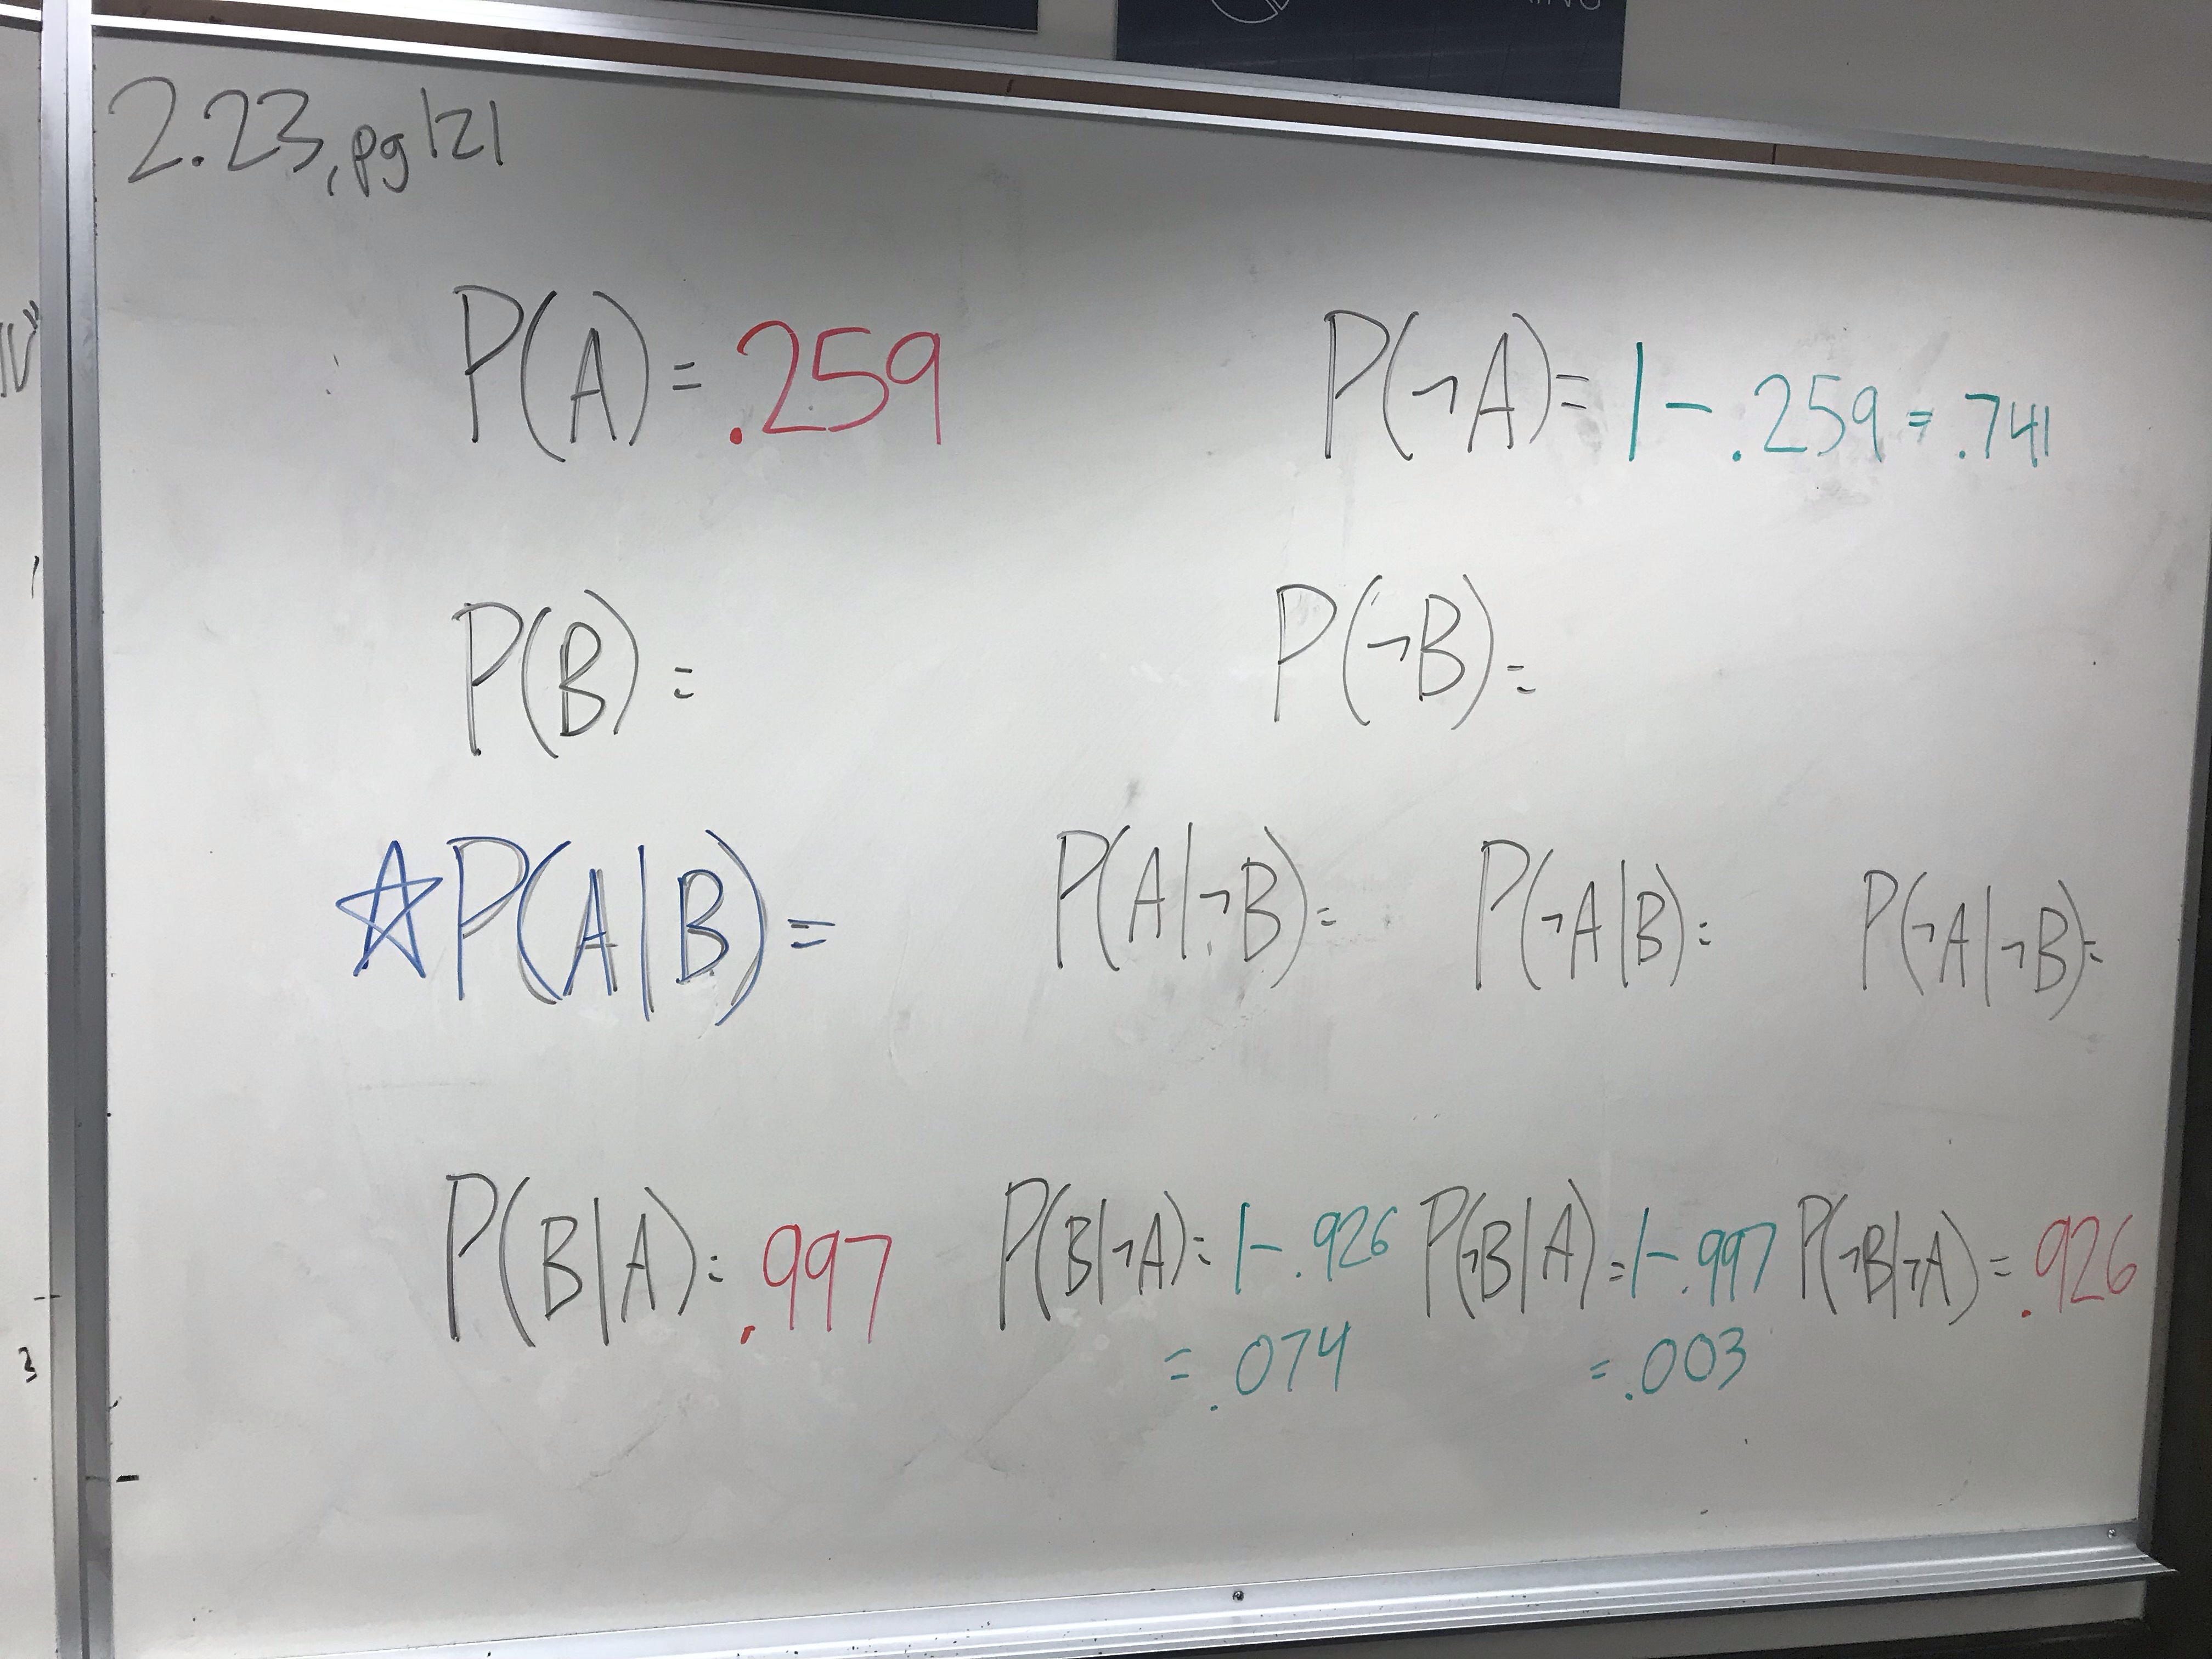 2.23, pg 121
P(A) = .259
P(¬A) = 1 - .259 = .741
P(B) =
P(¬B) =
☆P(A|B) =
P(A|¬B) =
P(¬A|B) =
P(¬A|¬B) =
P(B|A) = .997
P(B|¬A) = 1 - .926
= .074
P(¬B|A) = 1 - .997
= .003
P(¬B|¬A) = .926
3